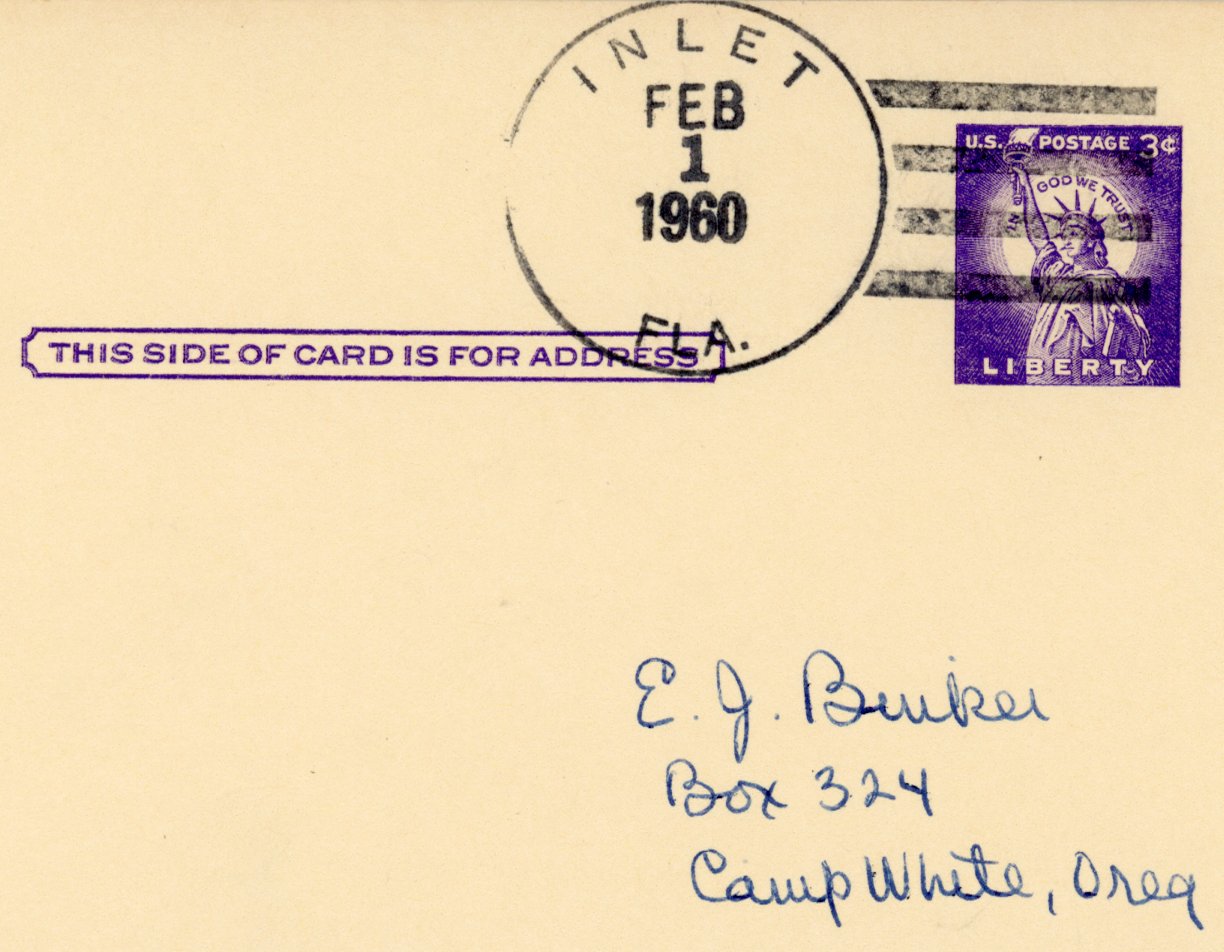 INLET
FEB
1
1960
FLA.
U.S. POSTAGE 3¢
IN GOD WE TRUST
LIBERTY
THIS SIDE OF CARD IS FOR ADDRESS
E. J. Bunker
Box 324
Camp White, Oreg